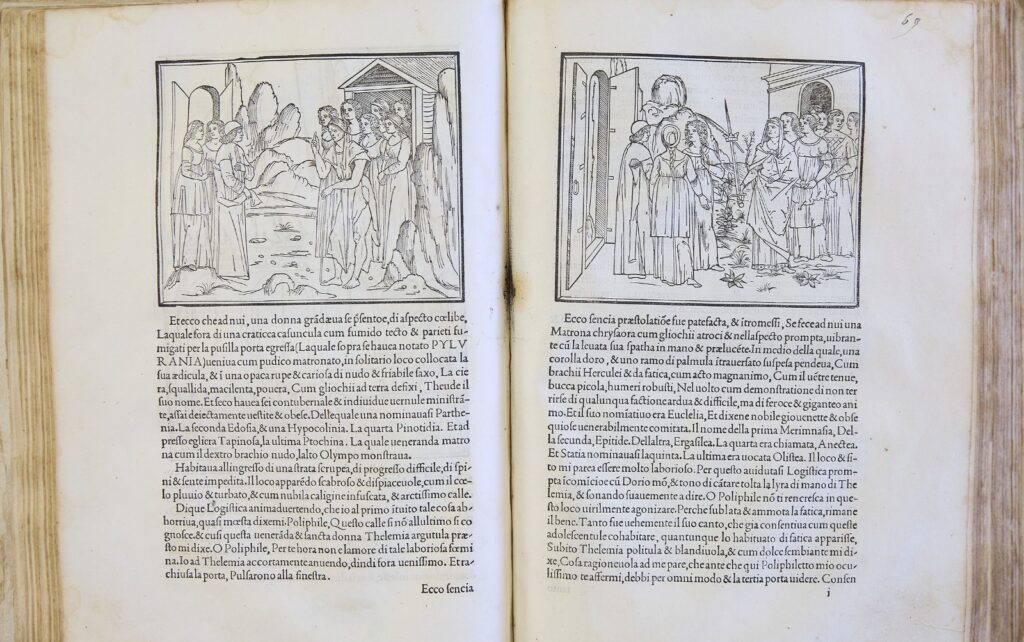 Et ecco che ad nui, una donna grãdæua se p̃sentoe, di aspecto cœlibe,
Laquale fora di una craticcea casuncula cum fumido tecto & parieti fu-
migati per la pusilla porta egressa (Laquale sopra se hauea notato PYLV
RANIA) ueniua cum pudico matronato, in solitario loco collocata la
sua ædicula, & ĩ una opaca rupe & cariosa di nudo & friabile saxo, La cie
ra, squallida, macilenta, pouera, Cum gliochii ad terra defixi, Theude il
suo nome. Et seco hauea sei contubernale & indiuidue uernule ministrã-
te, assai deiectamente uestite & obese. Dellequale una nominauasi Parthe
nia. La seconda Edosia, & una Hypocolinia. La quarta Pinotidia. Et ad
presso egliera Tapinosa, la ultima Ptochina. La quale ueneranda matro
na cum il dextro brachio nudo, lalto Olympo monstraua.
Habitaua allingresso di una strata scrupea, di progresso difficile, di spi
ni & sente impedita. Il loco apparẽdo scabroso & dispiaceuole, cum il cœ-
lo pluuio & turbato, & cum nubila caligine infuscata, & arctissimo calle.
Dique Logistica animaduertendo, che io al primo ituito tale cosa ab-
horriua, quasi mœsta dixemi. Poliphile, Questo calle si nõ allultimo si co
gnosce. & cusi questa uenerãda & sancta donna Thelemia argutula præ-
sto mi dixe. O Poliphile, Per te hora non e lamore di tale laboriosa fœmi
na. Io ad Thelemia accortamente anuendo, dindi fora uenissimo. Et ra-
chiusa la porta, Pulsarono alla sinestra.
Ecco sencia
69
Ecco sencia præstolatiõe fue patefacta, & ĩtromessi, Se fece ad nui una
Matrona chrysaora cum gliochii atroci & nellaspecto prompta, uibran-
te cũ la leuata sua spatha in mano & prælucẽte. In medio della quale, una
corolla doro, & uno ramo di palmula ĩtrauersato suspesa pendeua, Cum
brachii Herculei & da fatica, cum acto magnanimo, Cum il uẽtre tenue,
bucca picola, humeri robusti, Nel uolto cum demonstratione di non ter
rirse di qualunqua factione ardua & difficile, ma di feroce & giganteo ani
mo. Et il suo nomĩatiuo era Euclelia, Et dixene nobile giouenette & obse
quiose uenerabilmente comitata. Il nome della prima Merimnasia, Del-
la secunda, Epitide. Dellaltra, Ergasilea. La quarta era chiamata, Anectea.
Et Statia nominauasi laquinta. La ultima era uocata Olistea. Il loco & si-
to mi parea essere molto laborioso. Per questo auidutasi Logistica prom-
pta ĩcomicioe cũ Dorio mõ, & tono di cãtare tolta la lyra di mano di The
lemia, & sonando suauemente a dire. O Poliphile nõ ti rencresca in que-
sto loco uirilmente agonizare. Perche sublata & ammota la fatica, rimane
il bene. Tanto fue uehemente il suo canto, che gia consentiua cum queste
adolescentule cohabitare, quantunque lo habituato di fatica apparisse,
Subito Thelemia politula & blandiuola, & cum dolce sembiante mi di-
xe, Cosa ragioneuola ad me pare, che ante che qui Poliphiletto mio ocu-
lissimo te affermi, debbi per omni modo & la tertia porta uidere. Consen
i